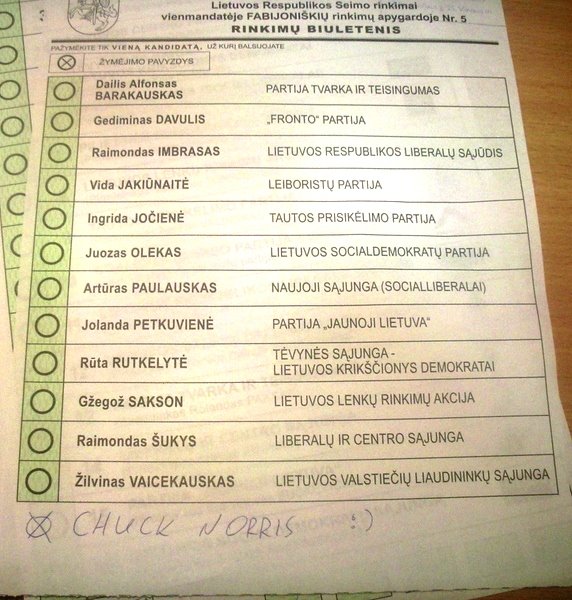 Lietuvos Respublikos Seimo rinkimai
vienmandatėje FABIJONIŠKIŲ rinkimų apygardoje Nr. 5
RINKIMŲ BIULETENIS
PAŽYMĖKITE TIK VIENĄ KANDIDATĄ, UŽ KURĮ BALSUOJATE
ŽYMĖJIMO PAVYZDYS
Dailis Alfonsas
BARAKAUSKAS PARTIJA TVARKA IR TEISINGUMAS
Gediminas DAVULIS „FRONTO“ PARTIJA
Raimondas IMBRASAS LIETUVOS RESPUBLIKOS LIBERALŲ SĄJŪDIS
Vida JAKIŪNAITĖ LEIBORISTŲ PARTIJA
Ingrida JOČIENĖ TAUTOS PRISIKĖLIMO PARTIJA
Juozas OLEKAS LIETUVOS SOCIALDEMOKRATŲ PARTIJA
Artūras PAULAUSKAS NAUJOJI SĄJUNGA (SOCIALLIBERALAI)
Jolanda PETKUVIENĖ PARTIJA „JAUNOJI LIETUVA“
Rūta RUTKELYTĖ TĖVYNĖS SĄJUNGA -
LIETUVOS KRIKŠČIONYS DEMOKRATAI
Gžegož SAKSON LIETUVOS LENKŲ RINKIMŲ AKCIJA
Raimondas ŠUKYS LIBERALŲ IR CENTRO SĄJUNGA
Žilvinas VAICEKAUSKAS LIETUVOS VALSTIEČIŲ LIAUDININKŲ SĄJUNGA
CHUCK NORRIS :)